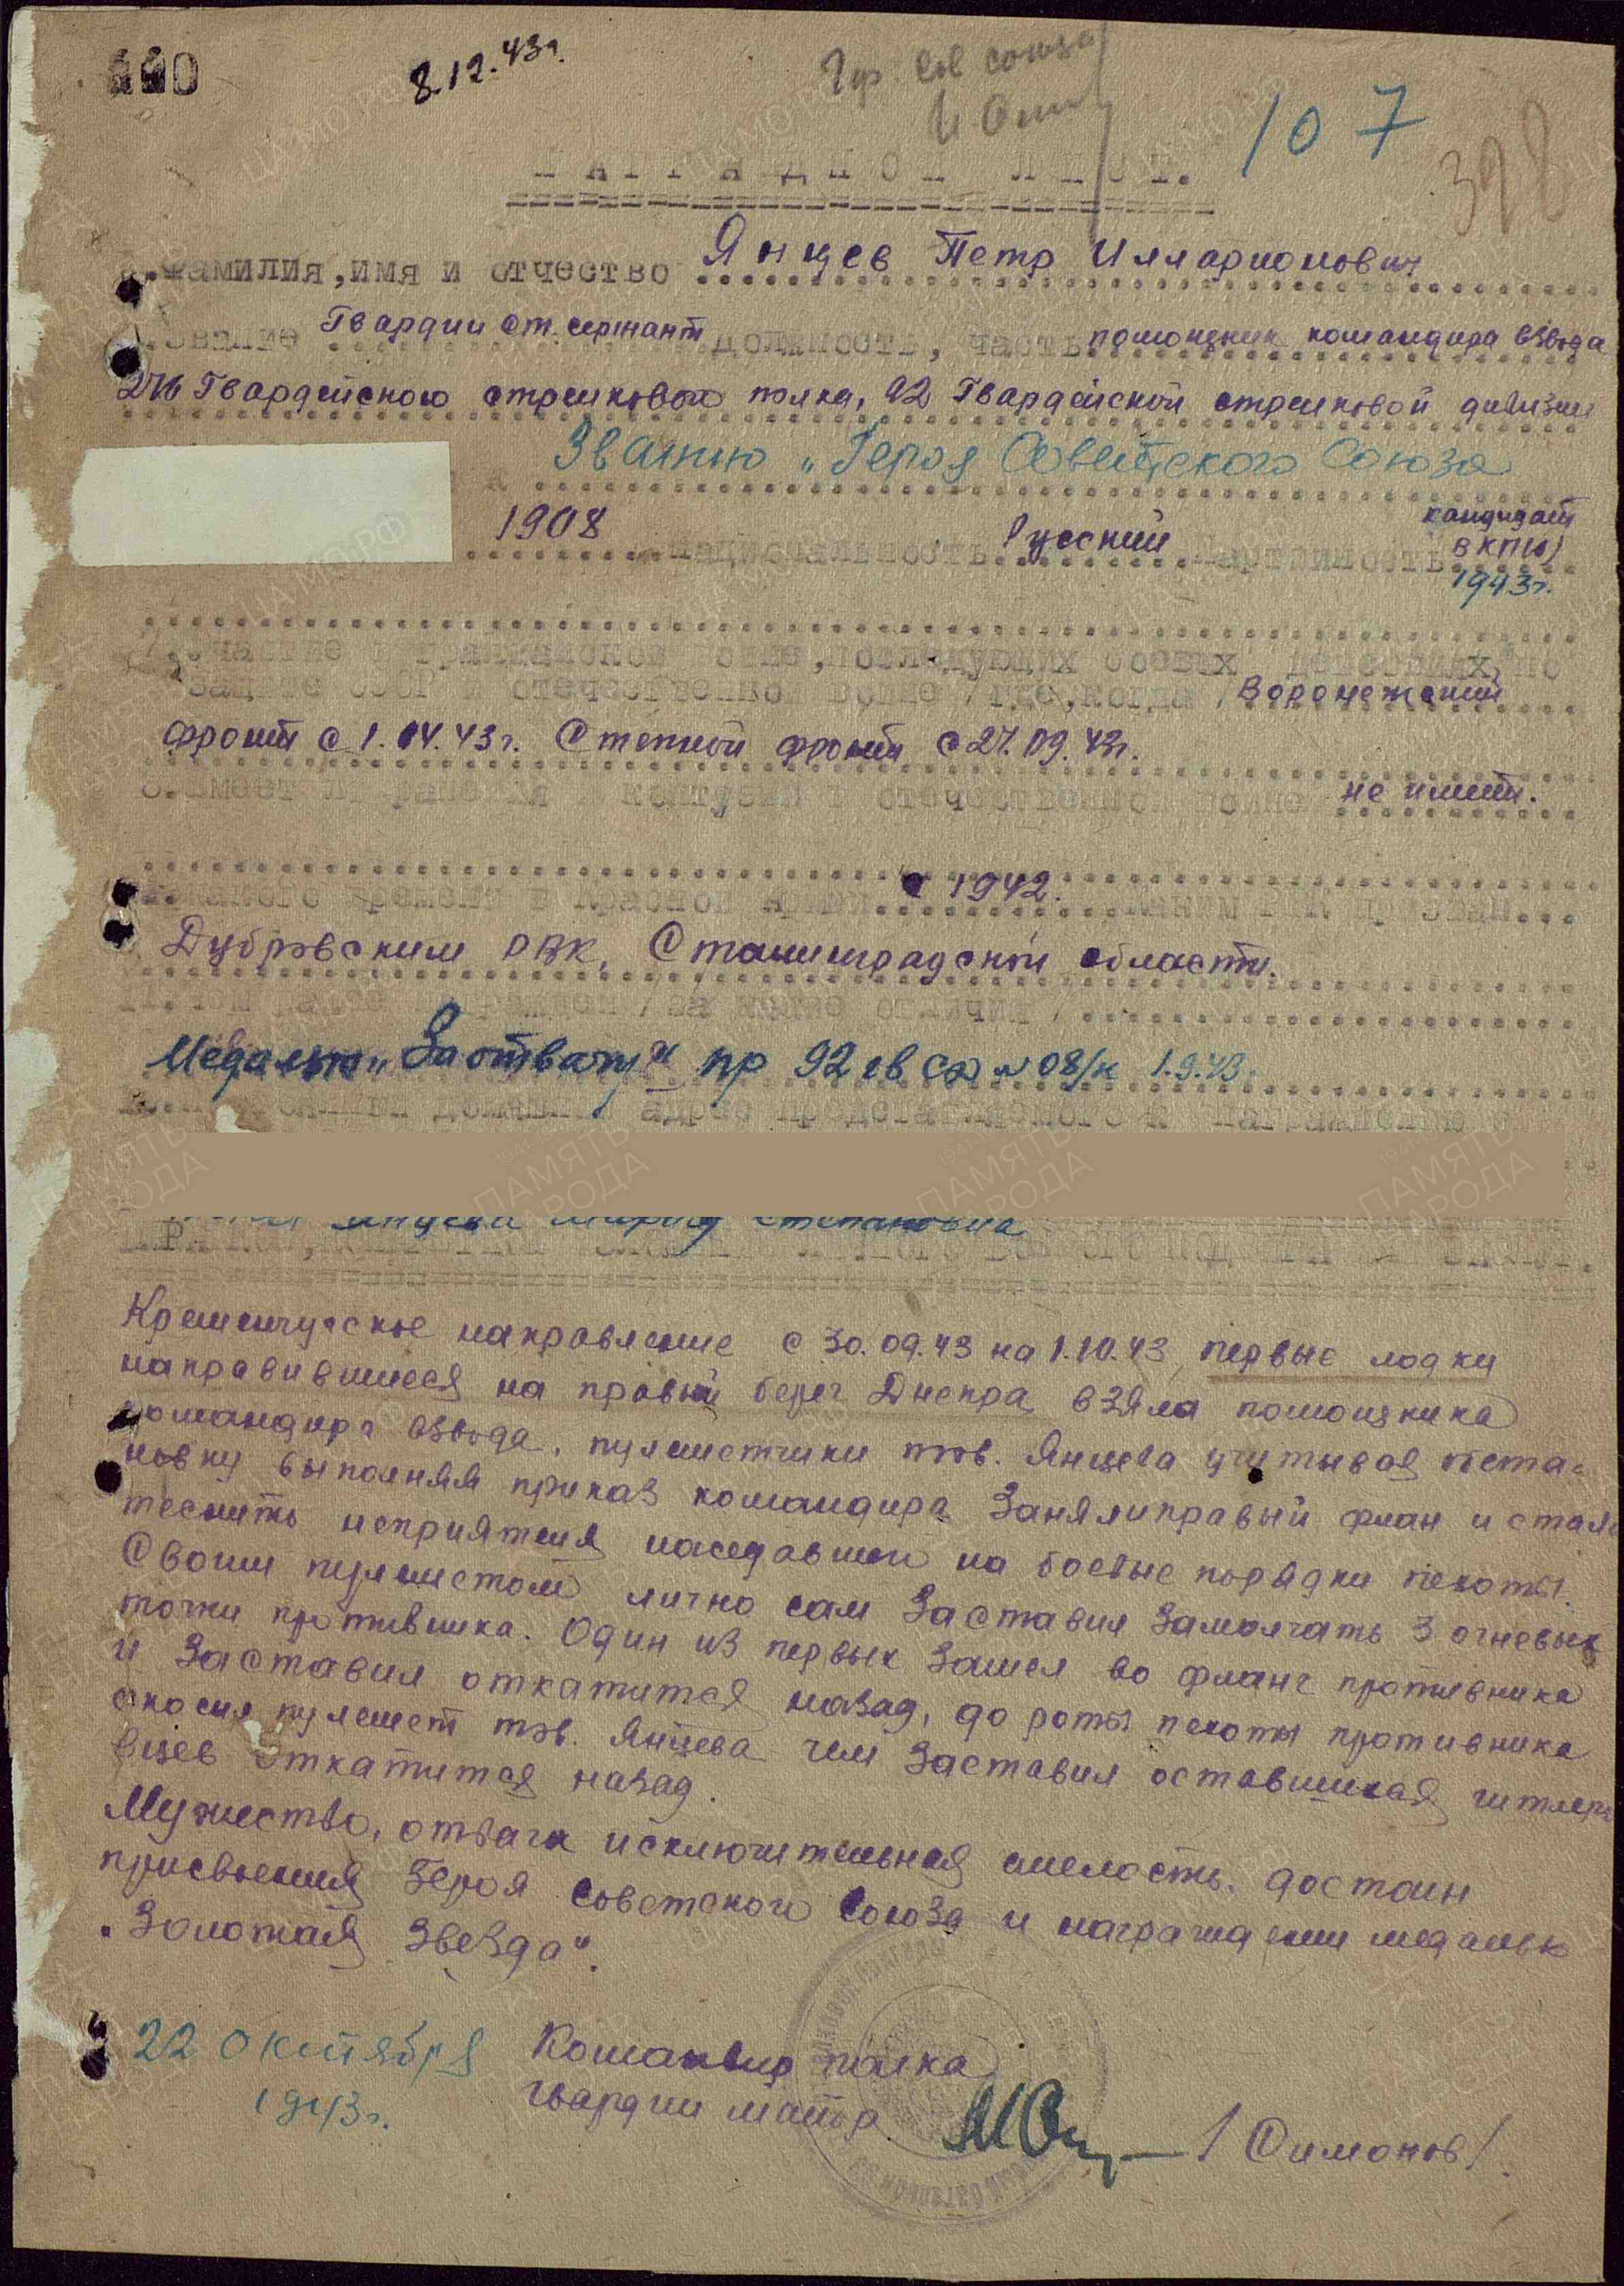 8.12.43г.
Гер. Сов Союза
107
328
НАГРАДНОЙ ЛИСТ.
1.Фамилия,имя и отчество Янцев Петр Илларионович
2.Звание Гвардии Ст. сержант должность, часть помощник командира взвода
276 Гвардейского стрелкового полка, 92 Гвардейской стрелковой дивизии
Званию „Героя Советского Союза
1908 национальность Русский Партийность кандидат
ВКП(б)
1943г.
участие в гражданской войне, последующих боевых действиях по
защите СССР и отечественной войне /где,когда/ Воронежский
фронт с 1.04.43г. Степной фронт с 27.09.43г.
8.Имеет ли ранения и контузии в отечественной войне не имеет.
с какого времени в Красной армии с 1942. каким РВК призван
Дубровским РВК, Сталинградской области.
11.Чем ранее награжден /за какие отличия/
Медалью „За отвагу" пр 92 гв сд №08/н 1.9.43.
домашний адрес представляемого к награждению
Янцева Мария Степановна
Кременчугское направление с 30.09.43 на 1.10.43 первые лодки
направившиеся на правый берег Днепра взяла помощника
командира взвода, пулеметчики тов. Янцева учитывая обста-
новку выполняя приказ командира заняли правый флан и стали
теснить неприятеля наседавшей на боевые порядки пехоты.
Своим пулеметом лично сам заставил замолчать 3 огневых
точки противника. Один из первых зашел во фланг противника
и заставил откатится назад, до роты пехоты противника
скосил пулемет тов. Янцева чем заставил оставшихся гитлеро
вцев откатится назад.
Мужество, отвага исключительная смелость. достоин
присвоения Героя Советского Союза и награждении медалью
„Золотая Звезда".
22 октября
1943г.
Командир полка
гвардии майор
/Симонов/